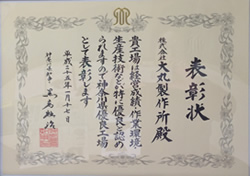 表彰状
株式会社
大丸製作所殿
貴工場は経営成績、作業環境
生産技術などが特に優良と認め
られますので神奈川県優良工場
として表彰します
平成二十五年一月十七日
神奈川県知事